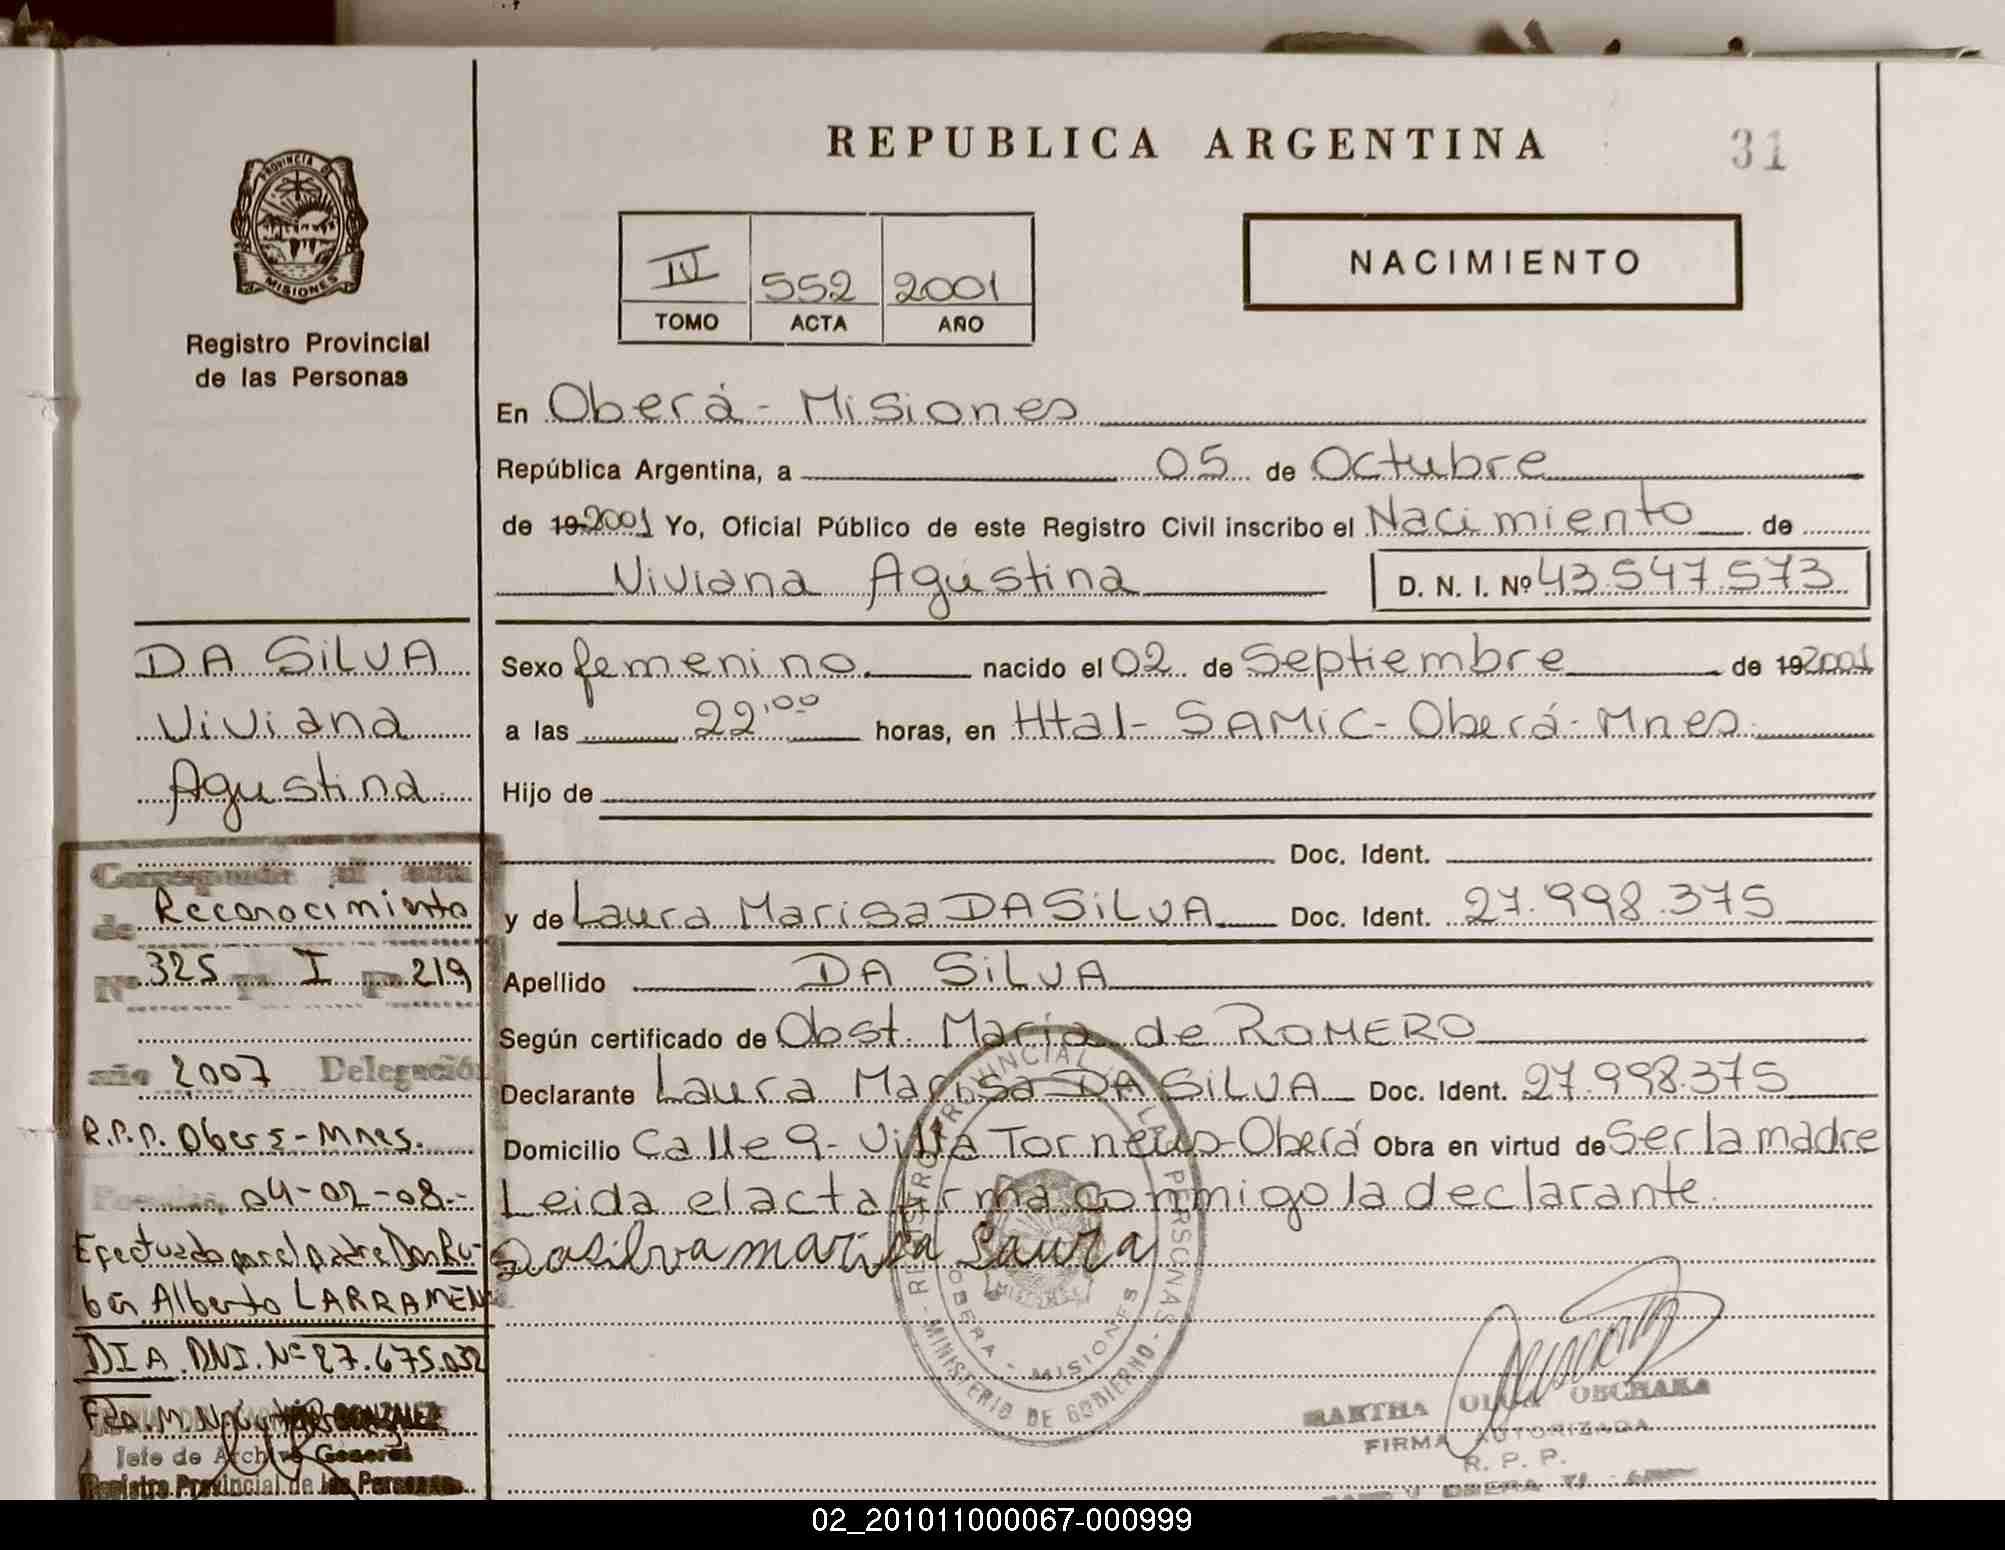 REPUBLICA ARGENTINA
31
PROVINCIA DE
MISIONES
Registro Provincial
de las Personas
IV 552 2001
TOMO ACTA AÑO
NACIMIENTO
En Oberá - Misiones
República Argentina, a 05 de Octubre
de 19 2001 Yo, Oficial Público de este Registro Civil inscribo el Nacimiento de
Viviana Agustina D. N. I. Nº 43.547.573
DA SiLVA
Viviana
Agustina
Sexo femenino nacido el 02 de Septiembre de 19 2001
a las 22,00 horas, en Htal- SAMiC- Oberá- Mnes.
Hijo de
Doc. Ident.
y de Laura Marisa DA SiLVA Doc. Ident. 27.998.375
Apellido DA SiLVA
Según certificado de Obst. María de ROMERO
Declarante Laura Marisa DA SiLVA Doc. Ident. 27.998.375
Domicilio Calle 9- Villa Torneus- Oberá Obra en virtud de Ser la madre
Leida el acta firma conmigo la declarante.
Dasilva marisa Laura
Corresponde al acta
de Reconocimiento
Nº 325 Tº I Fº 219
año 2007 Delegación
R.P.P. Oberá - Mnes.
Posadas, 04-02-08.-
Efectuado por el padre Don Ru-
bén Alberto LARRAMEN
DIA. DNI. Nº 27.675.032
Fdo. M. GONZALEZ
Jefe de Archivo General
Registro Provincial de las Personas
REGISTRO PROVINCIAL DE LAS PERSONAS
- MINISTERIO DE GOBIERNO -
OBERA - MISIONES
MISIONES
MARTHA OLGA OBCHAKA
FIRMA AUTORIZADA
R. P. P.
02_201011000067-000999